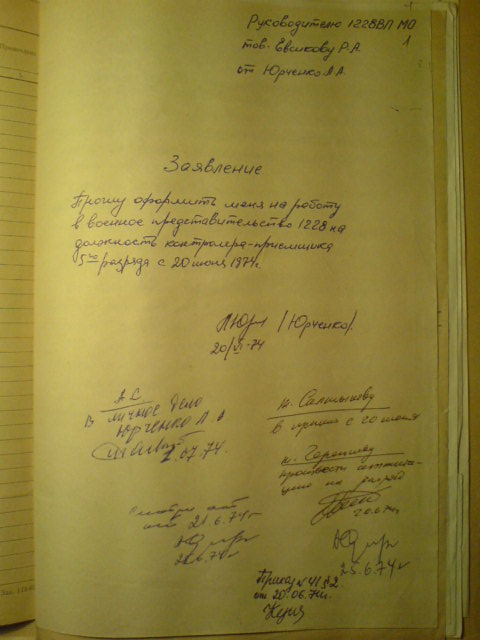 Руководителю 1228 ВП МО
тов. Евсикову Р.А.
от Юрченко Л.А.
Заявление
Прошу оформить меня на работу
в военное представительство 1228 на
должность контролера-приемщика
5го разряда с 20 июня 1974г.
/Юрченко/.
20/VI-74
В личное дело
Юрченко Л.А
1.07.74.
в приказ с 20 июня
на разряд
20.6.74
21.6.74г
25.6.74г
25.6.74г
Приказ № 41 §2.
от 20.06.74г.